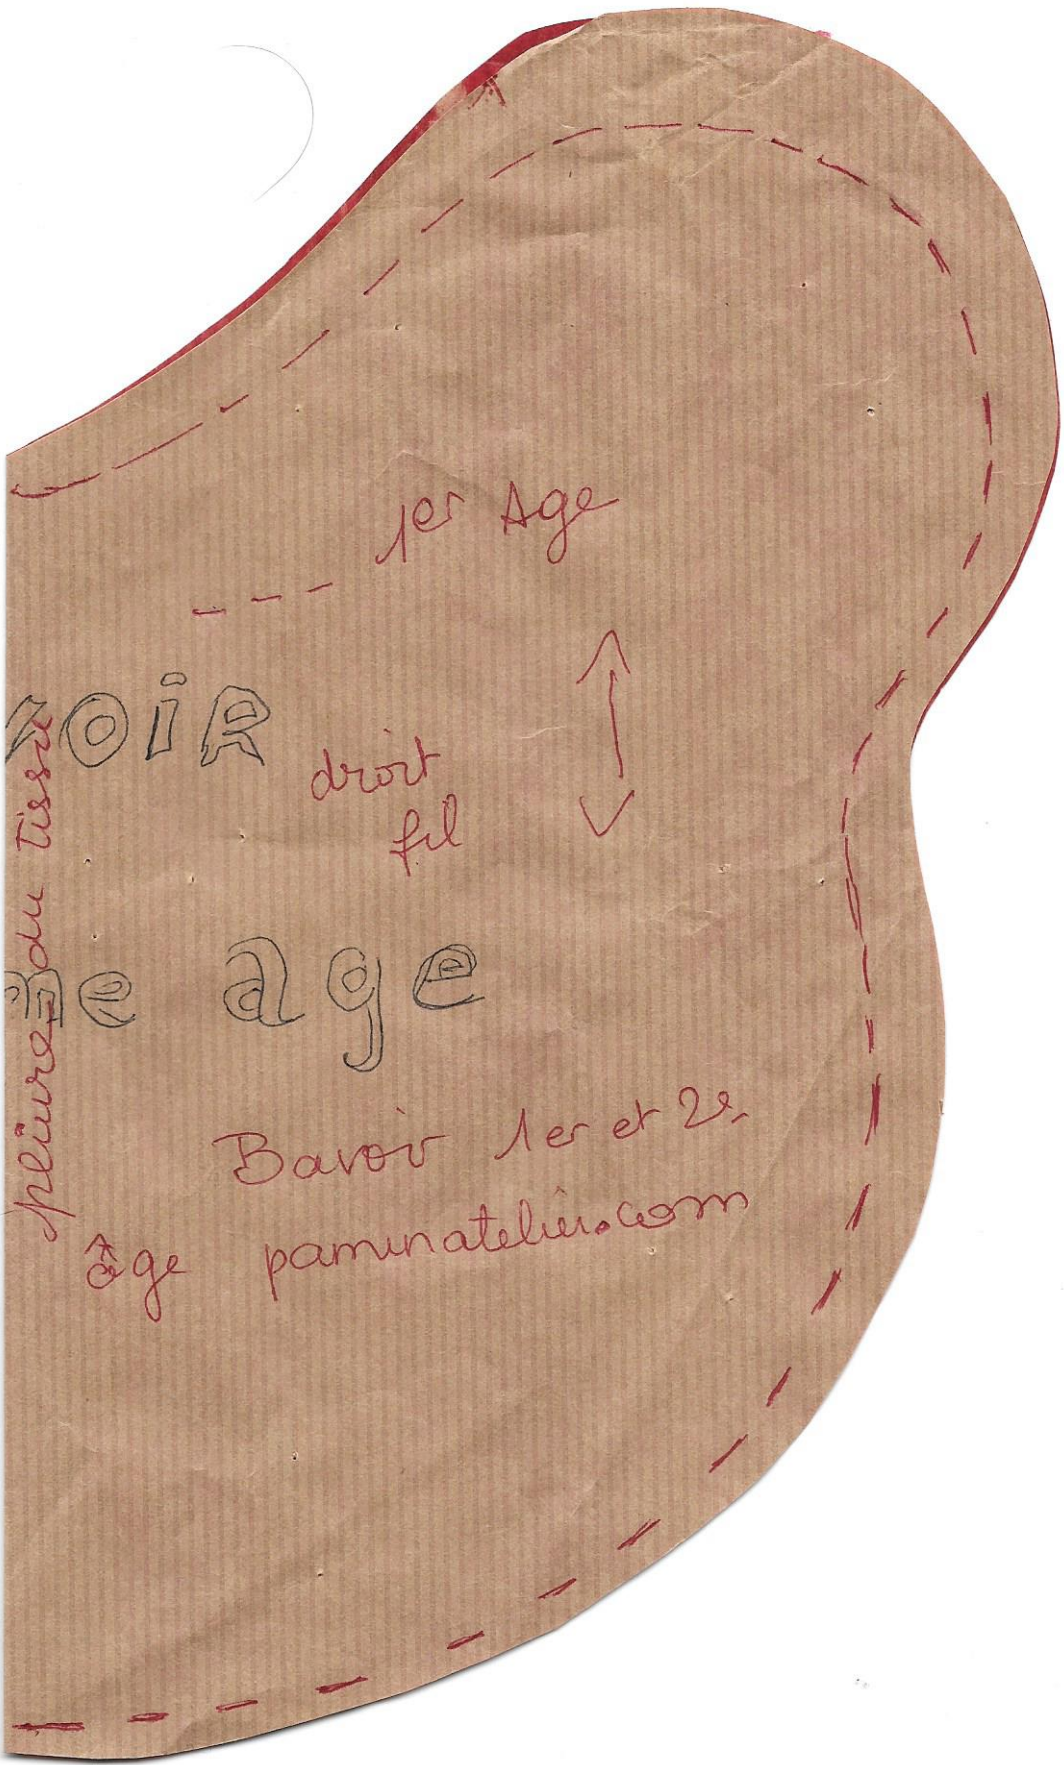 1er Age
voir
droit
fil
pliure du tissu
me age
Bavoir 1er et 2e
âge paminatelier.com